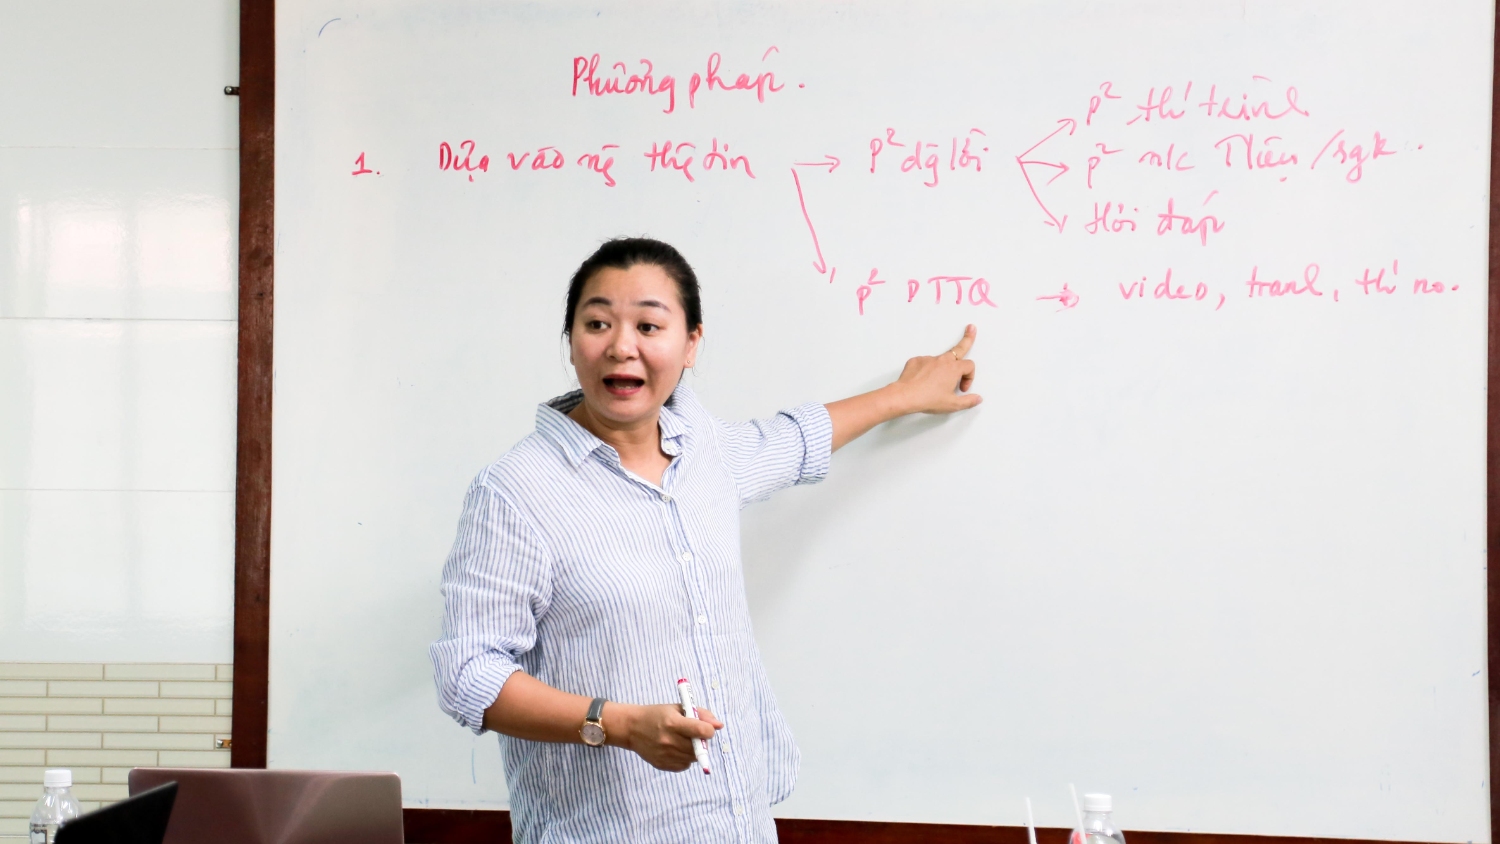 Phương pháp.
1. Dựa vào ng thg tin → P² dg lời → p² th' trình
p² n/c Tliệu / sgk.
Hỏi đáp
p² DTTQ → video, tranh, th' no.